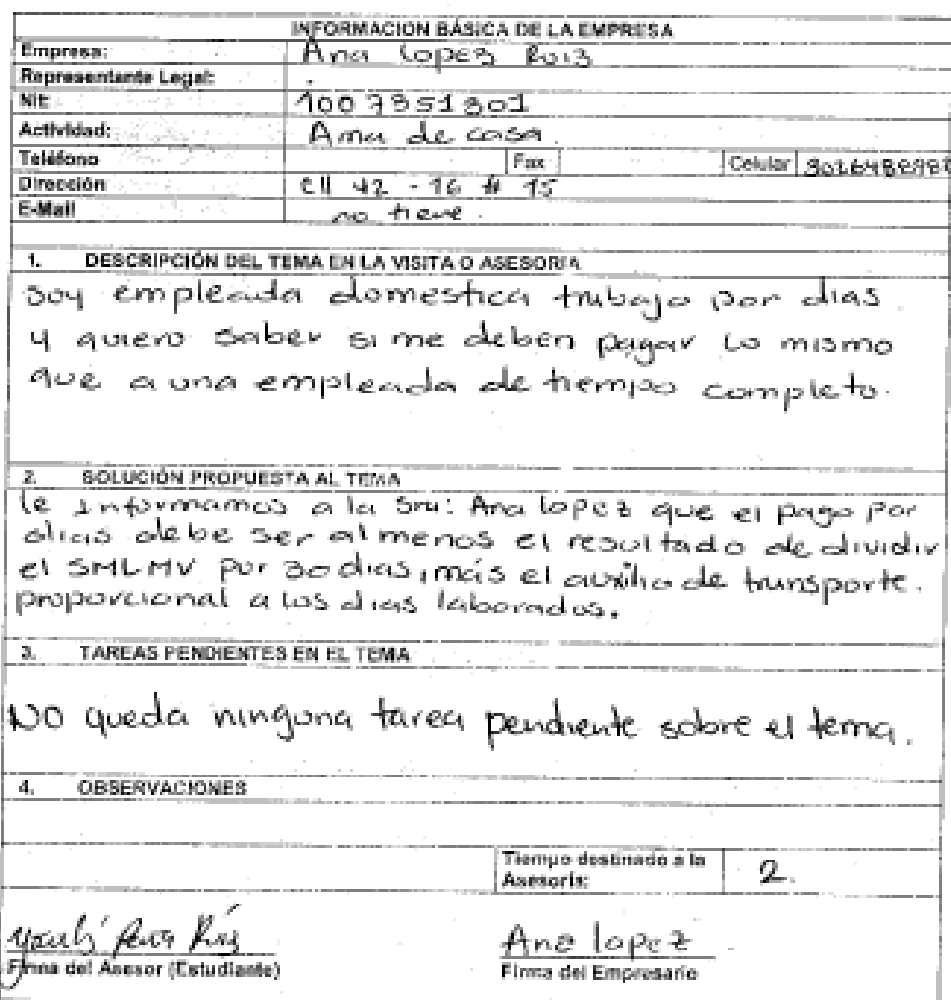 INFORMACION BÁSICA DE LA EMPRESA
Empresa: Ana Lopez Ruiz
Representante Legal:
Nit: 1007351301
Actividad: Ama de casa
Teléfono Fax Celular
Dirección Cll 42 - 16 # 15
E-Mail no tiene.
1. DESCRIPCIÓN DEL TEMA EN LA VISITA O ASESORIA
Soy empleada domestica trabajo por dias
y quiero saber si me deben pagar lo mismo
que a una empleada de tiempo completo.
2. SOLUCIÓN PROPUESTA AL TEMA
le Informamos a la Sra: Ana lopez que el pago por
dias debe ser al menos el resultado de dividir
el SMLMV por 30 dias, más el auxilio de transporte.
proporcional a los dias laborados.
3. TAREAS PENDIENTES EN EL TEMA
NO queda ninguna tarea pendiente sobre el tema.
4. OBSERVACIONES
Tiempo destinado a la
Asesoria: 2.
Ana lopez
Firma del Asesor (Estudiante) Firma del Empresario